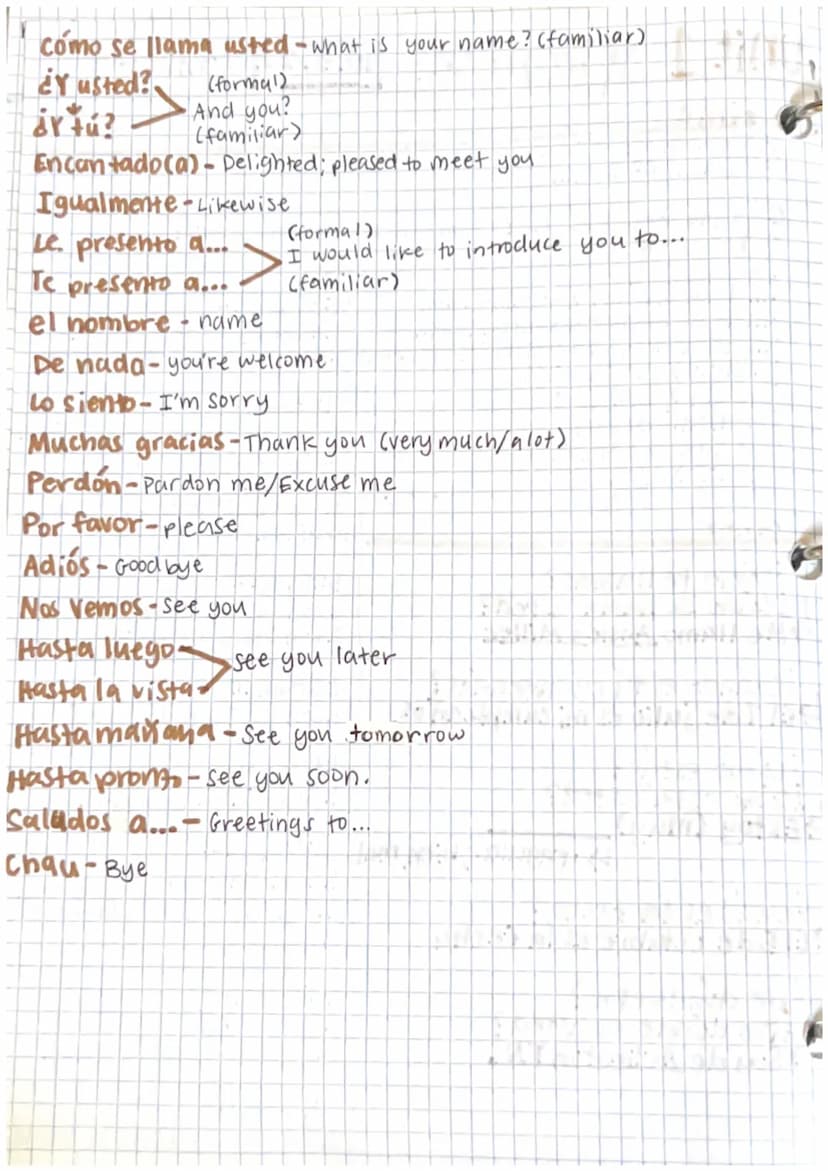 Cómo se llama usted - what is your name? (familiar)
¿Y usted? (formal)
And you?
¿Y tú? (familiar)
Encantado(a) - Delighted; pleased to meet you
Igualmente - Likewise
Le presento a... (formal)
I would like to introduce you to...
Te presento a... (familiar)
el nombre - name
De nada - you're welcome
Lo siento - I'm sorry
Muchas gracias - Thank you (very much/a lot)
Perdón - Pardon me/Excuse me
Por favor - please
Adiós - Goodbye
Nos vemos - see you
Hasta luego
see you later
Hasta la vista
Hasta mañana - See you tomorrow
Hasta pronto - see you soon.
Saludos a... - Greetings to...
Chau - Bye